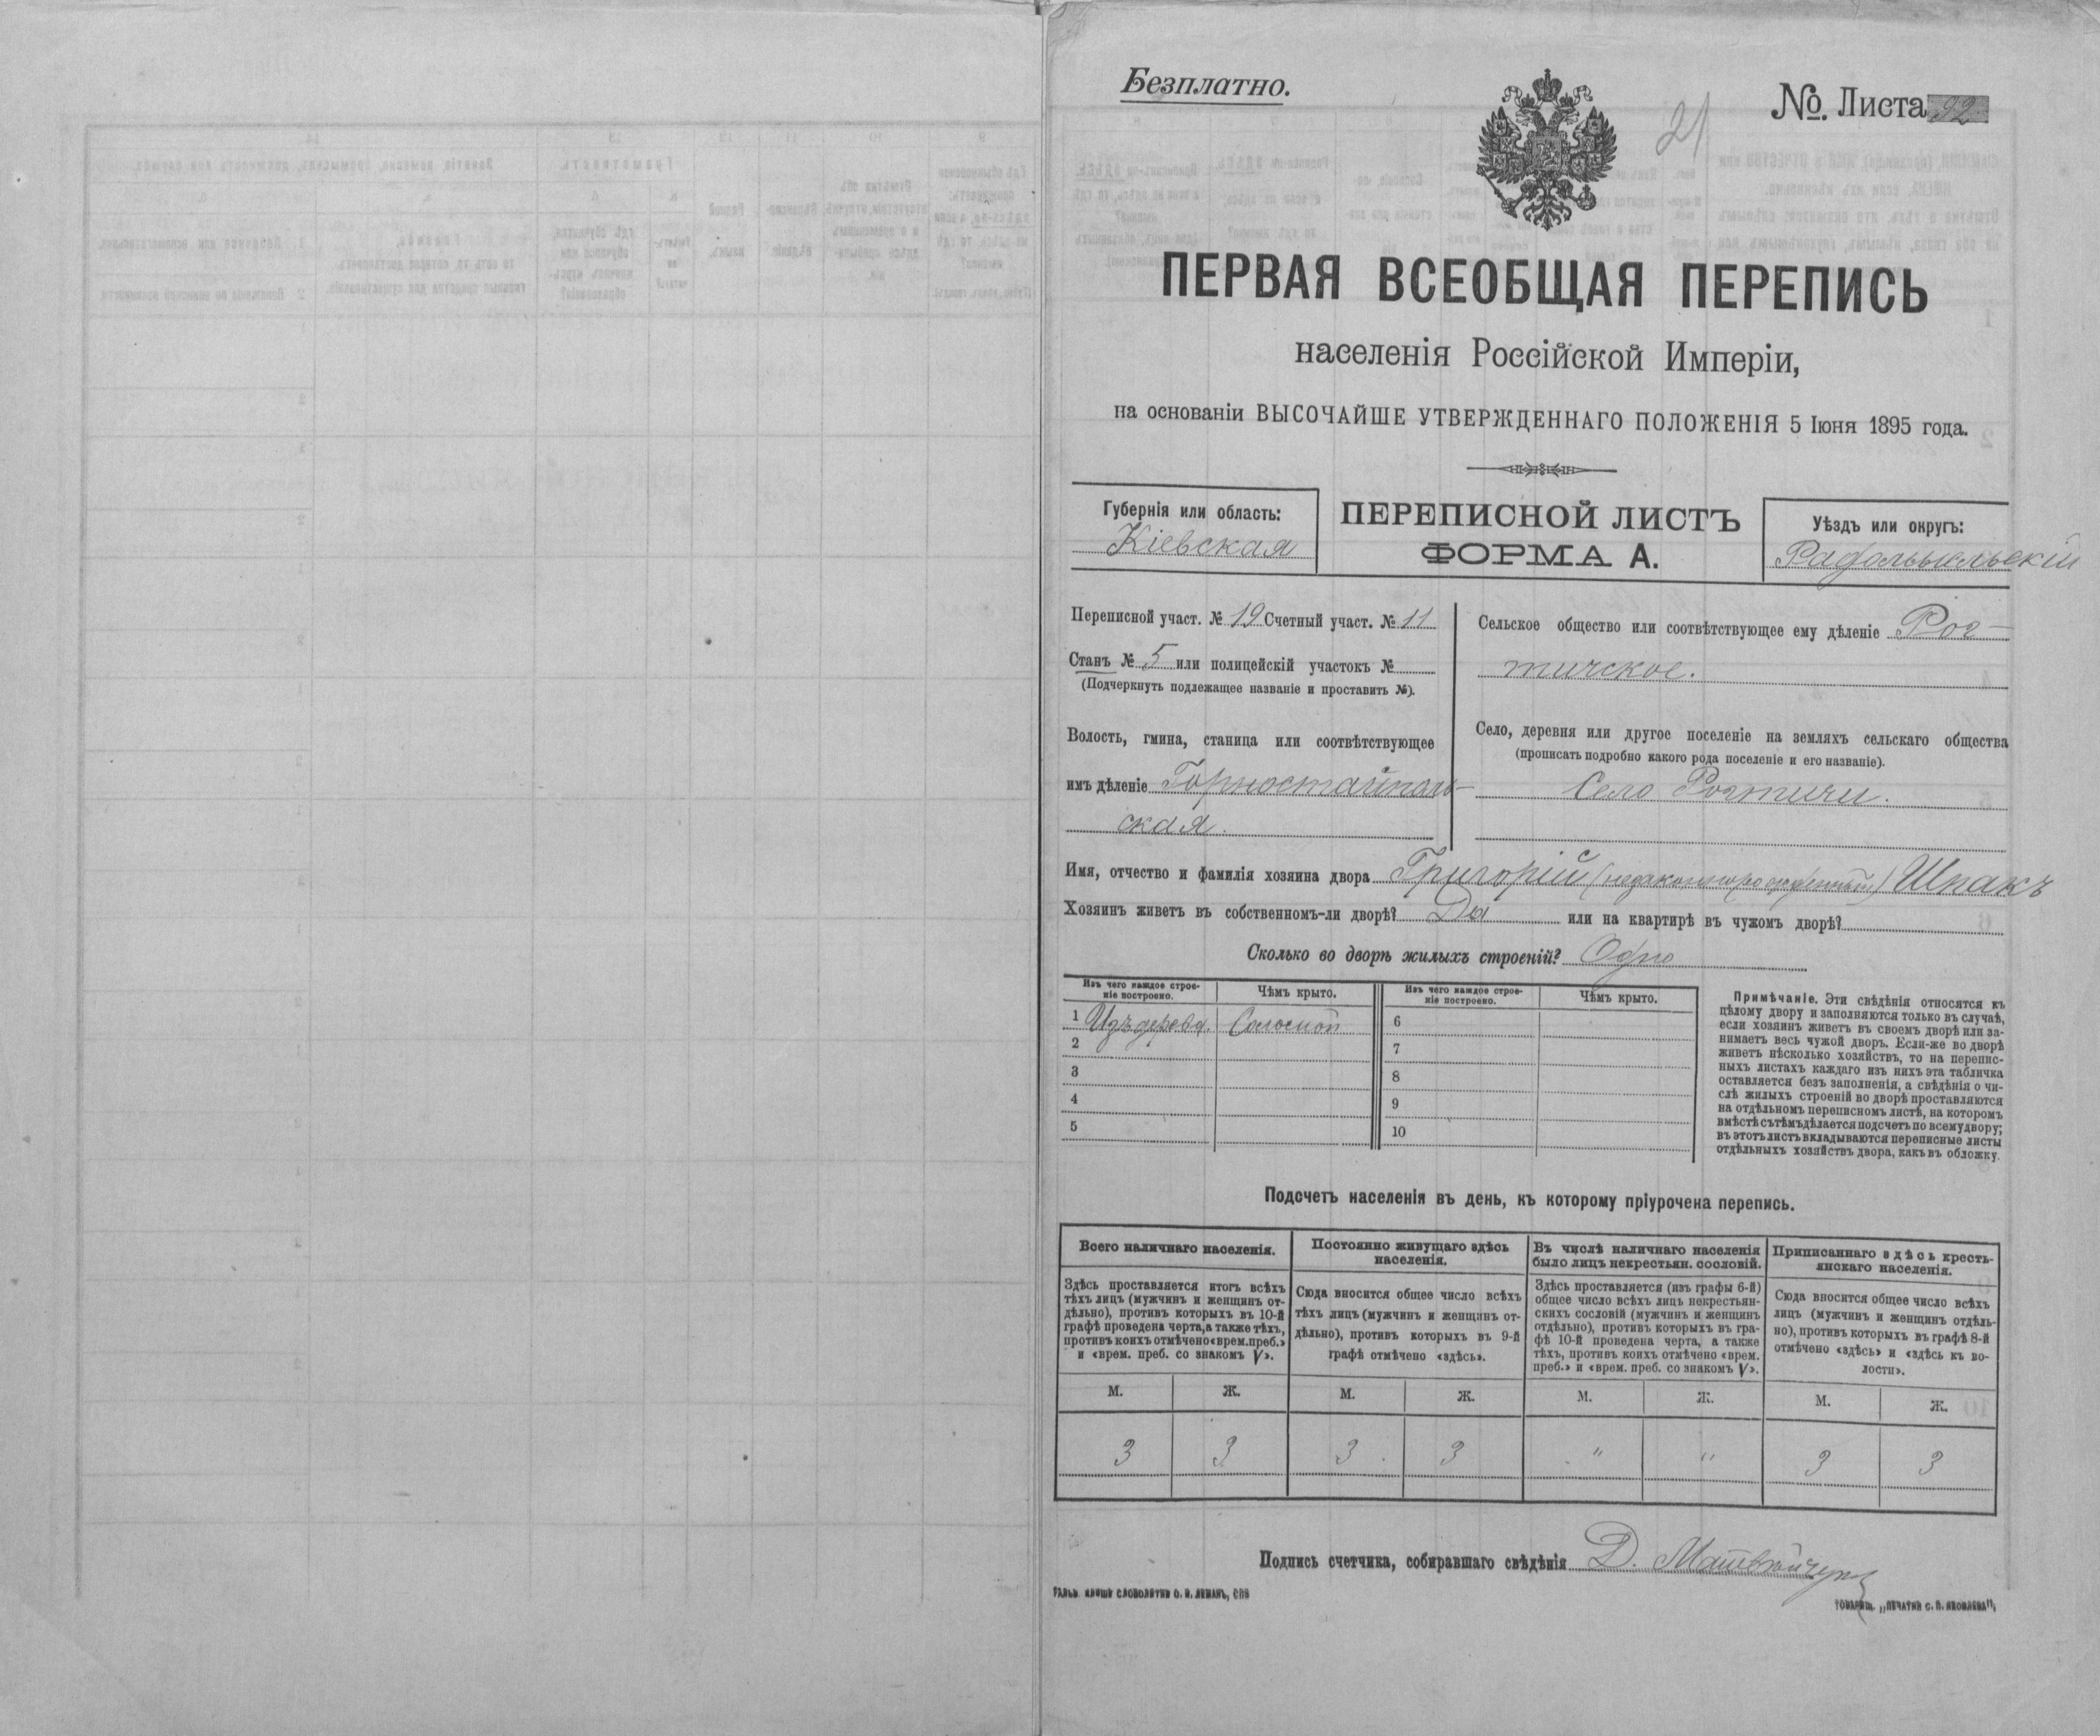 Безплатно.
21
№. Листа 92
ПЕРВАЯ ВСЕОБЩАЯ ПЕРЕПИСЬ
населенія Россійской Имперіи,
на основаніи ВЫСОЧАЙШЕ УТВЕРЖДЕННАГО ПОЛОЖЕНІЯ 5 Іюня 1895 года.
Губернія или область:
Кіевская
ПЕРЕПИСНОЙ ЛИСТЪ
ФОРМА А.
Уѣздъ или округъ:
Радомысльскій
Переписной участ. № 19 Счетный участ. № 11
Станъ № 5 или полицейскій участокъ №
(Подчеркнуть подлежащее названіе и проставить №).
Волость, гмина, станица или соотвѣтствующее
имъ дѣленіе Горностайполь-
ская.
Сельское общество или соотвѣтствующее ему дѣленіе Рот-
тичское.
Село, деревня или другое поселеніе на земляхъ сельскаго общества
(прописать подробно какого рода поселеніе и его названіе).
Село Роттичи.
Имя, отчество и фамилія хозяина двора Григорій (незаконнорожденный) Шпакъ
Хозяинъ живетъ въ собственномъ-ли дворѣ? Да или на квартирѣ въ чужомъ дворѣ?
Сколько во дворѣ жилыхъ строеній? Одно
Изъ чего каждое строе-
ніе построено.
Чѣмъ крыто.
Изъ чего каждое строе-
ніе построено.
Чѣмъ крыто.
1 Изъ дерева. Соломой
2
3
4
5
6
7
8
9
10
Примѣчаніе. Эти свѣдѣнія относятся къ
цѣлому двору и заполняются только въ случаѣ,
если хозяинъ живетъ въ своемъ дворѣ или за-
нимаетъ весь чужой дворъ. Если-же во дворѣ
живетъ нѣсколько хозяйствъ, то на перепис-
ныхъ листахъ каждаго изъ нихъ эта табличка
оставляется безъ заполненія, а свѣдѣнія о чи-
слѣ жилыхъ строеній во дворѣ проставляются
на отдѣльномъ переписномъ листѣ, на которомъ
вмѣстѣ съ тѣмъ дѣлается подсчетъ по всему двору;
въ этотъ листъ вкладываются переписные листы
отдѣльныхъ хозяйствъ двора, какъ въ обложку.
Подсчетъ населенія въ день, къ которому пріурочена перепись.
Всего наличнаго населенія.
Здѣсь проставляется итогъ всѣхъ
тѣхъ лицъ (мужчинъ и женщинъ от-
дѣльно), противъ которыхъ въ 10-й
графѣ проведена черта, а также тѣхъ,
противъ коихъ отмѣчено «врем. преб.»
и «врем. преб. со знакомъ V».
Постоянно живущаго здѣсь
населенія.
Сюда вносится общее число всѣхъ
тѣхъ лицъ (мужчинъ и женщинъ от-
дѣльно), противъ которыхъ въ 9-й
графѣ отмѣчено «здѣсь».
Въ числѣ наличнаго населенія
было лицъ некрестьян. сословій.
Здѣсь проставляется (изъ графы 6-й)
общее число всѣхъ лицъ некрестьян-
скихъ сословій (мужчинъ и женщинъ
отдѣльно), противъ которыхъ въ гра-
фѣ 10-й проведена черта, а также
тѣхъ, противъ коихъ отмѣчено «врем.
преб.» и «врем. преб. со знакомъ V».
Приписаннаго здѣсь кресть-
янскаго населенія.
Сюда вносится общее число всѣхъ
лицъ (мужчинъ и женщинъ отдѣль-
но), противъ которыхъ въ графѣ 8-й
отмѣчено «здѣсь» и «здѣсь къ во-
лости».
М. Ж. М. Ж. М. Ж. М. Ж.
3 3 3 3 " " 3 3
Подпись счетчика, собиравшаго свѣдѣнія Д. Матвѣйчук
ГАЛЬВ. КЛИШЕ СЛОВОЛИТНИ О. И. ЛЕМАНЪ, СПБ
ТОВАРИЩ. „ПЕЧАТНЯ С. П. ЯКОВЛЕВА",